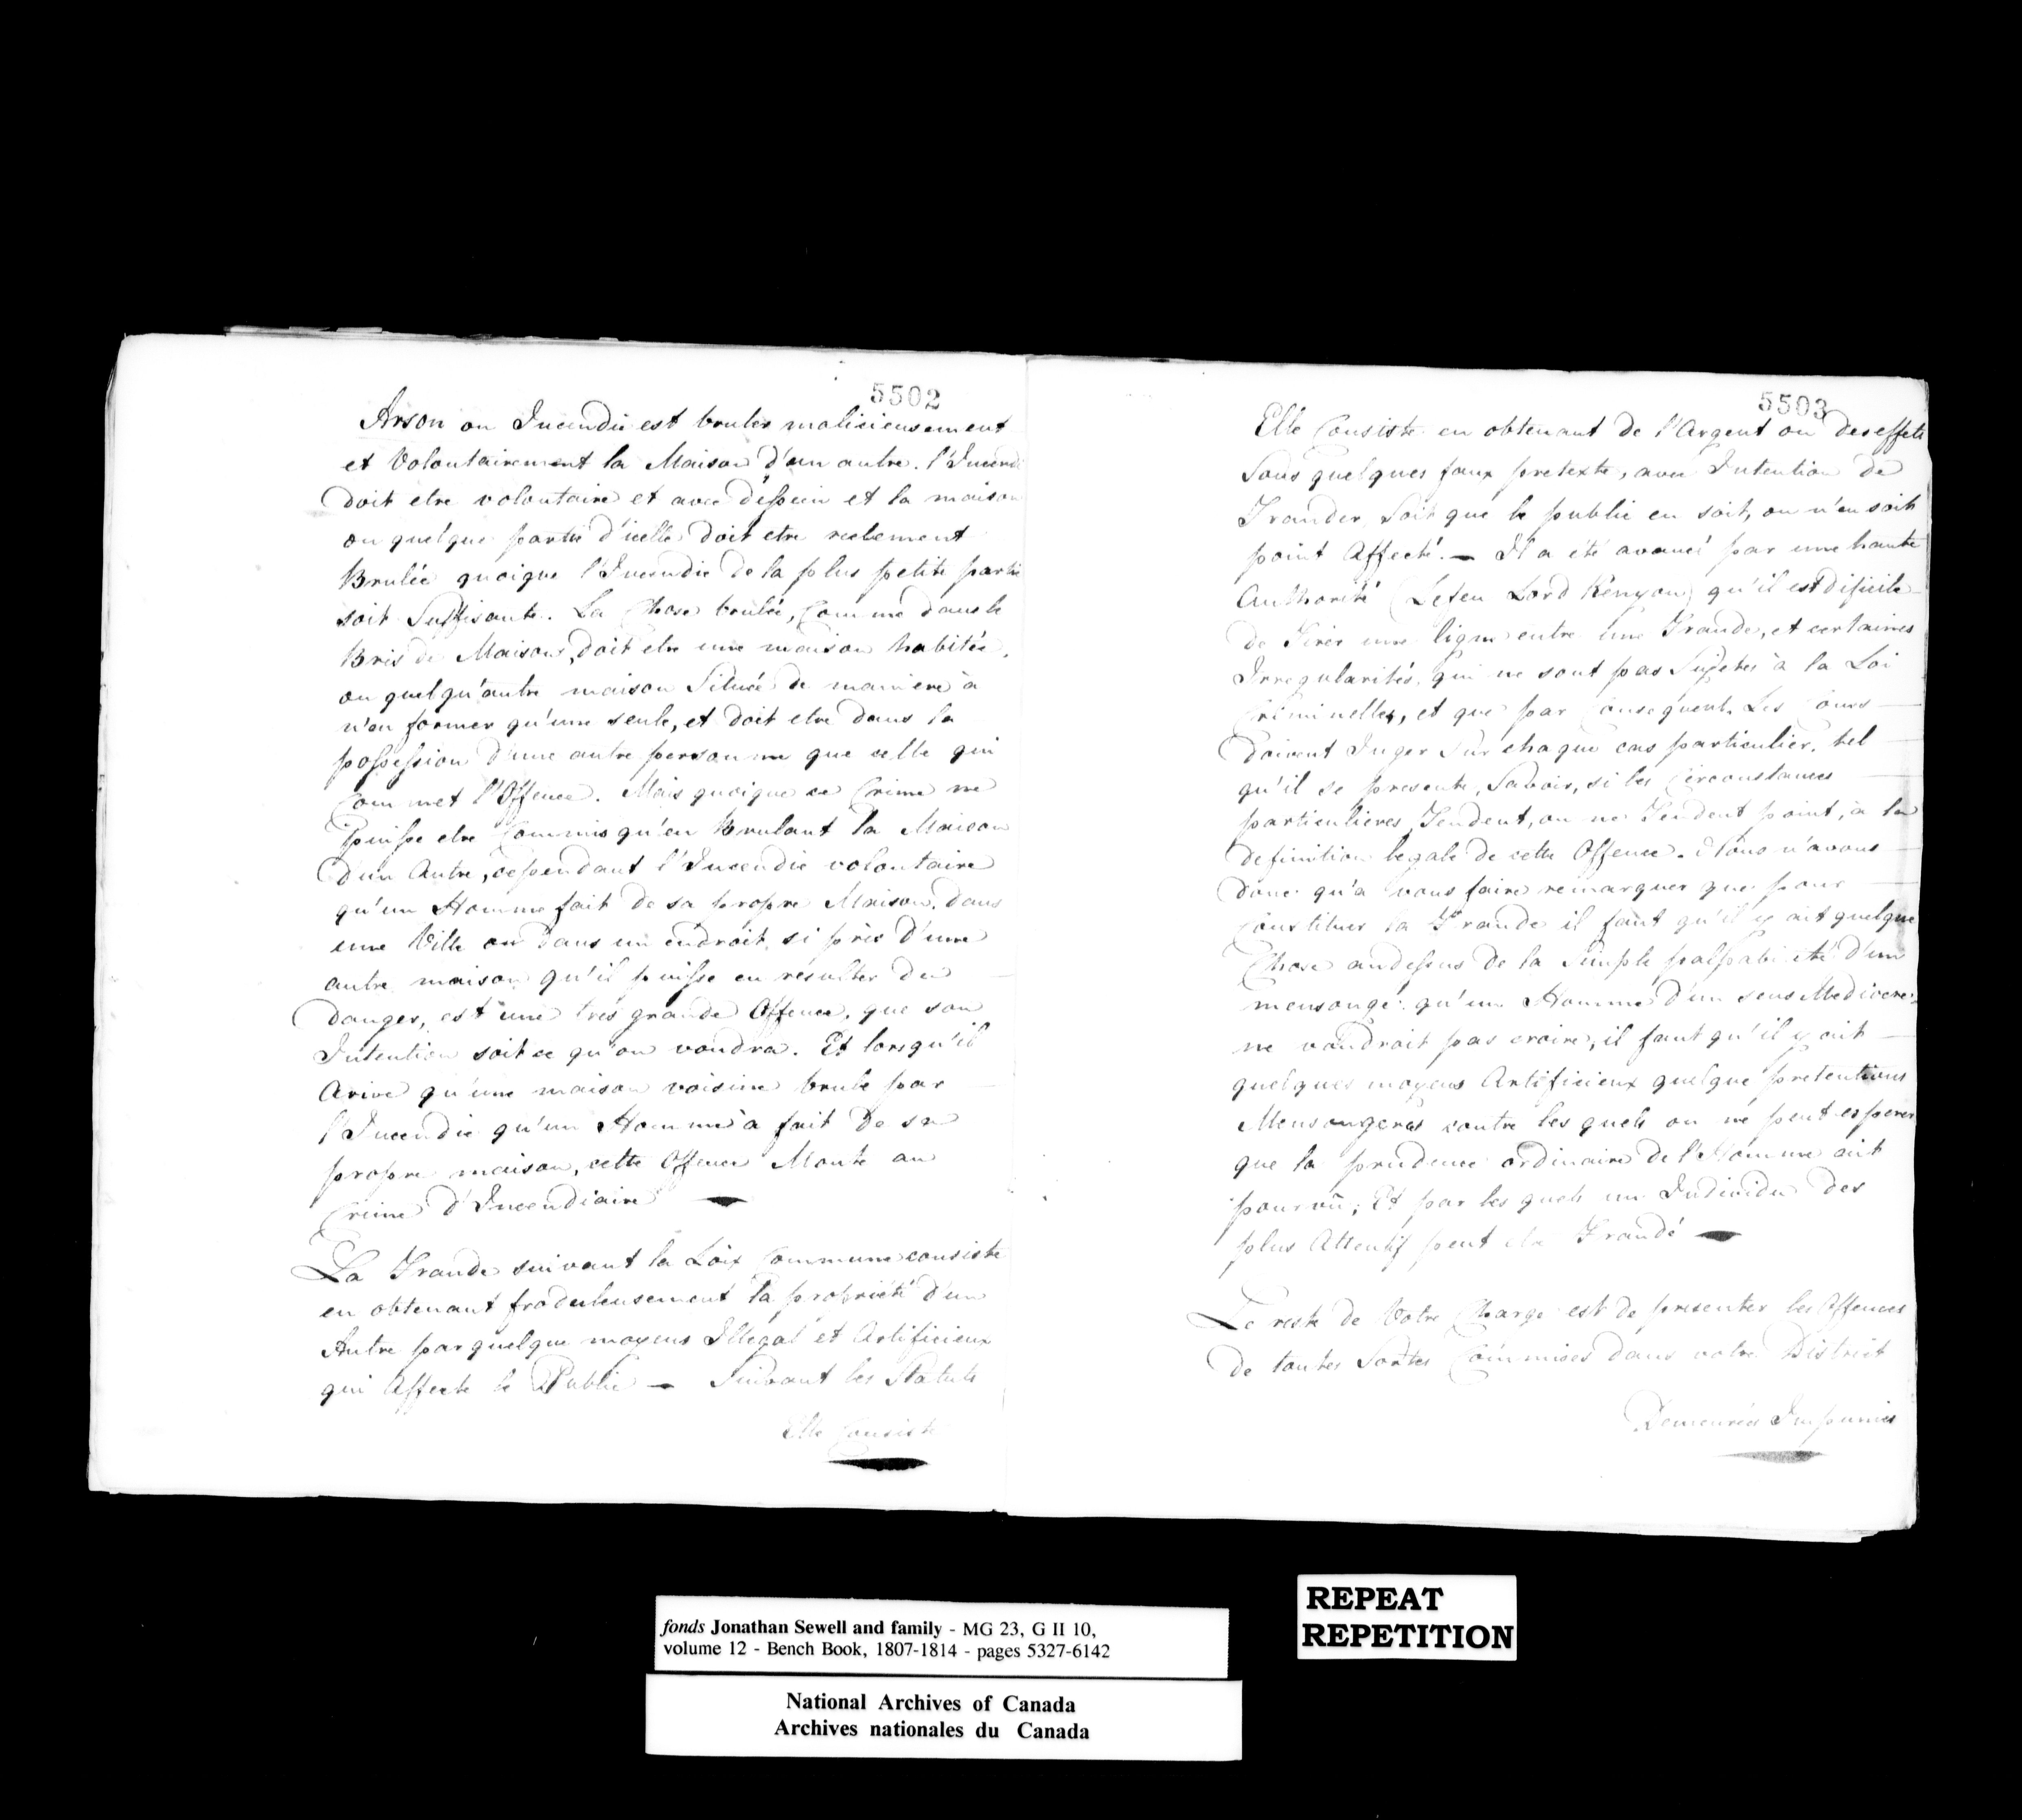 5502
Arson ou Incendie est bruler malicieusement
et Volontairement la Maison d'un autre. l'Incendi
doit etre volontaire et avec dessein et la maison
ou quelque partie d'icelle doit etre reelement
Brulée quoique l'Incendie de la plus petite partie
soit Suffisante. La Chose brulée, Comme dans le
Bris de Maison, doit etre une maison habitée,
ou quelqu'autre maison Située de maniere à
n'en former qu'une seule, et doit etre dans la
possession d'une autre personne que celle qui
Commet l'Offence. Mais quoique ce Crime ne
Puisse etre Commis qu'en Brulant la Maison
d'un Autre, cependant l'Incendie volontaire
qu'un Homme fait de sa propre Maison, dans
une Ville ou dans un endroit si près d'une
autre maison qu'il puisse en résulter du
danger, est une très grande Offence, que son
Intention soit ce qu'on voudra. Et lorsqu'il
Arive qu'une maison voisine brule par
l'Incendie qu'un Homme à fait de sa
propre maison, cette Offence Monte au
Crime d'Incendiaire —
La Fraude suivant la Loix Commune consiste
en obtenant froduleusement la propriété d'un
Autre par quelque moyens Illégal et Artificieux
qui Affecte le Public — Suivant les Statuts
Elle Consiste
5503
Elle Consiste en obtenant de l'Argent ou des effets
Sous quelques faux pretexte, avec Intention de
Frauder, Soit que le public en soit, ou n'en soit
point Affecté. — Il a été avancé par une haute
Authorité (Le feu Lord Kenyon) qu'il est dificile
de Tirer une ligne entre une Fraude, et certaines
Irregularités, qui ne sont pas Sujetes à la Loi
Criminelles, et que par Consequent Les Cours
doivent Juger Sur chaque cas particulier, tel
qu'il se presente, Savoir, si les Circonstances
particulieres Tendent, ou ne Tendent point, à la
definition legale de cette Offence. Nous n'avons
donc qu'a vous faire remarquer que pour
Constituer la Fraude il faut qu'il y ait quelque
Chose audessus de la Simple palpabileté d'un
mensonge: qu'un Homme d'un sens Mediocre
ne voudroit pas croire, il faut qu'il y ait
quelques moyens Artificieux quelque pretentions
Mensongeres contre les quels on ne peut esperer
que la prudence ordinaire de l'Homme ait
pourvû; Et par les quels un Individu des
plus Attentif peut etre Fraudé —
Le reste de Votre Charge est de presenter les Offences
de toutes Sortes Commises dans votre District
Demeurées Impunies
fonds Jonathan Sewell and family - MG 23, G II 10,
volume 12 - Bench Book, 1807-1814 - pages 5327-6142
National Archives of Canada
Archives nationales du Canada
REPEAT
REPETITION